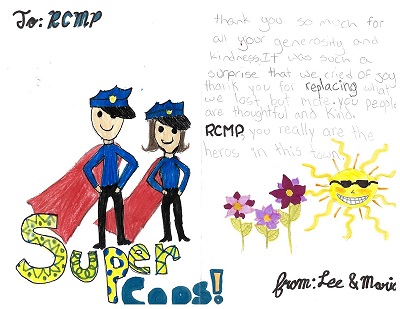 To: RCMP
Super
Cops!
thank you so much for
all your generosity and
kindness. It was such a
surprise that we cried of joy
thank you for replacing what
we lost but more. you people
are thoughtful and kind.
RCMP, you really are the
heros in this town
from: Lee & Maria